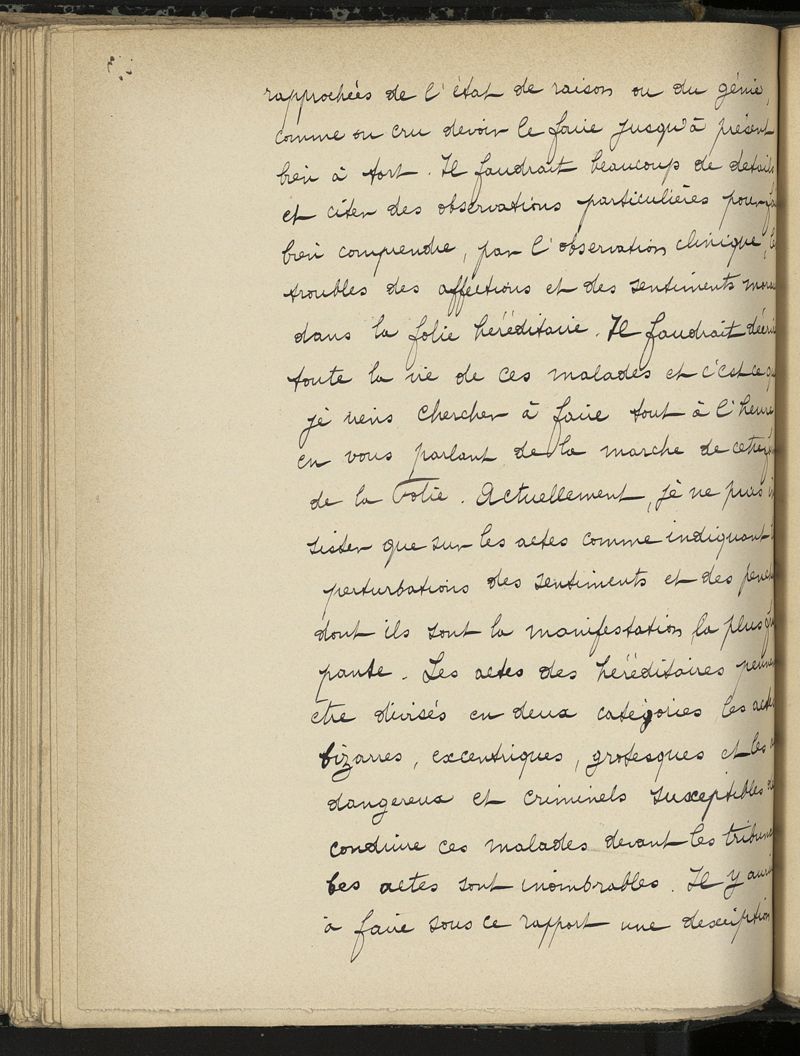 rapprochées de l'état de raison ou du génie,
comme on cru devoir le faire jusqu'à présent
bien à tort. Il faudrait beaucoup de détails
et citer des observations particulières pour
bien comprendre, par l'observation clinique,
troubles des affections et des sentiments mora
dans la folie héréditaire. Il faudrait décri
toute la vie de ces malades et c'est ce
je viens chercher à faire tout à l'heure
en vous parlant de la marche de cette
de la Folie. Actuellement, je ne puis
sister que sur les actes comme indiquant
perturbations des sentiments et des
dont ils sont la manifestation la plus
pante. Les actes des héréditaires peuven
etre divisés en deux catégories les actes
bizarres, excentriques, grotesques et les
dangereux et criminels susceptibles
conduire ces malades devant les tribuna
Ces actes sont inombrables. Il y aurai
à faire sous ce rapport une description